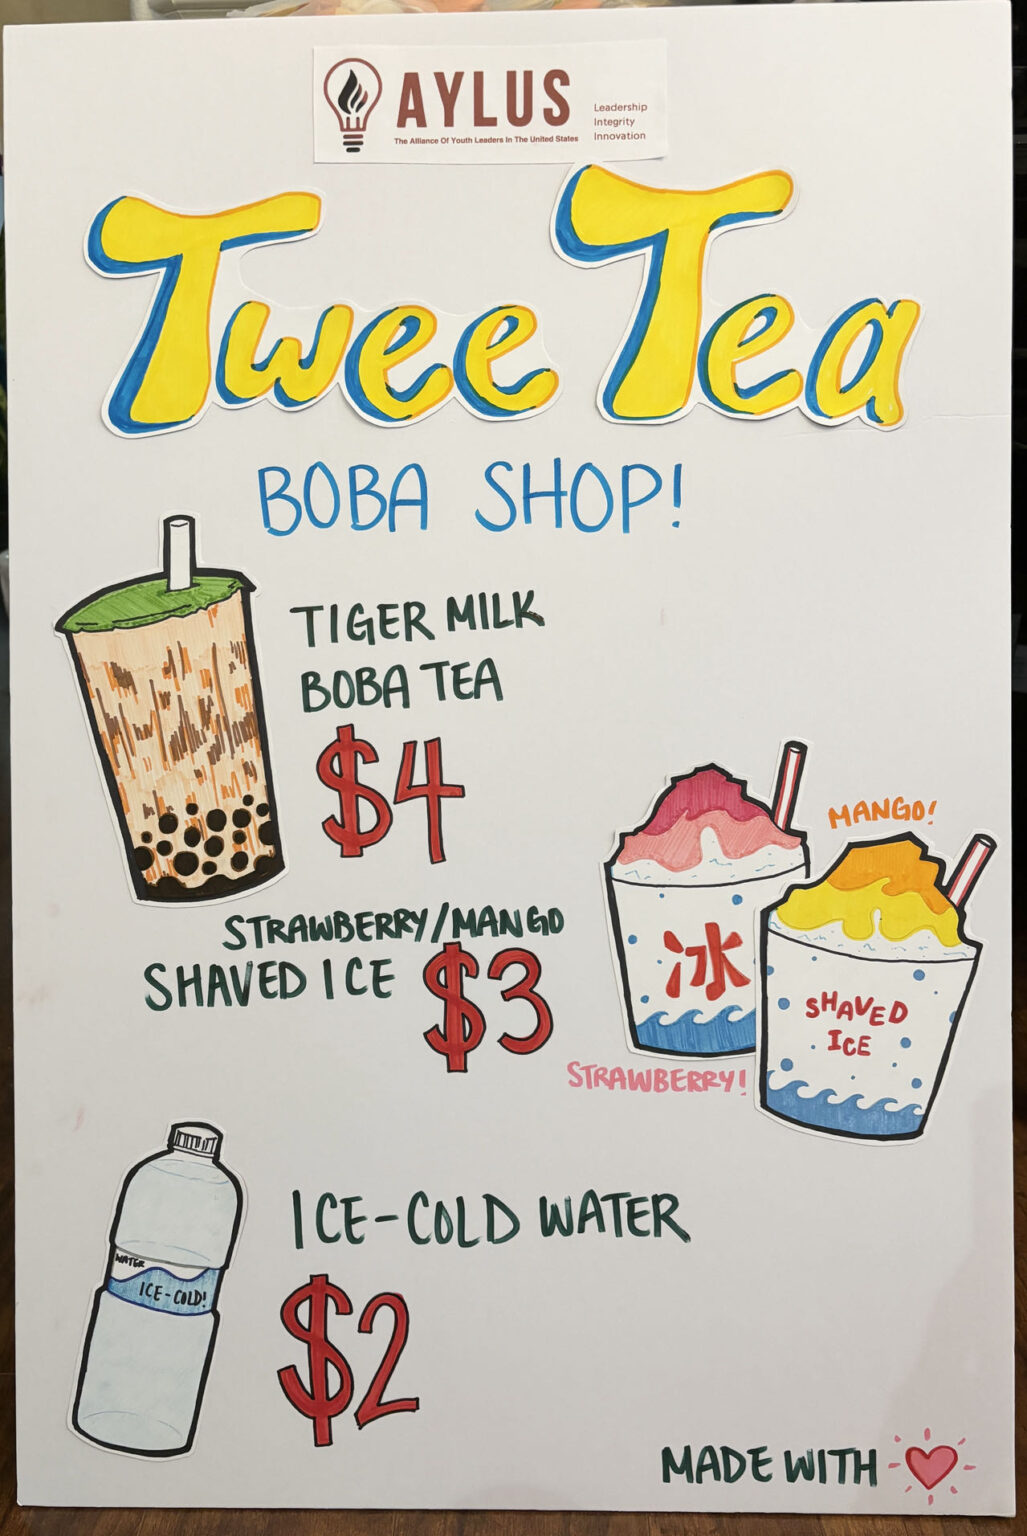 AYLUS
The Alliance Of Youth Leaders In The United States
Leadership
Integrity
Innovation
Twee Tea
BOBA SHOP!
TIGER MILK
BOBA TEA
$4
STRAWBERRY/MANGO
SHAVED ICE $3
MANGO!
冰
SHAVED
ICE
STRAWBERRY!
WATER
ICE-COLD!
ICE-COLD WATER
$2
MADE WITH